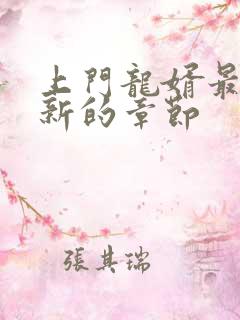 上門龍婿最
新的章節
張其瑞